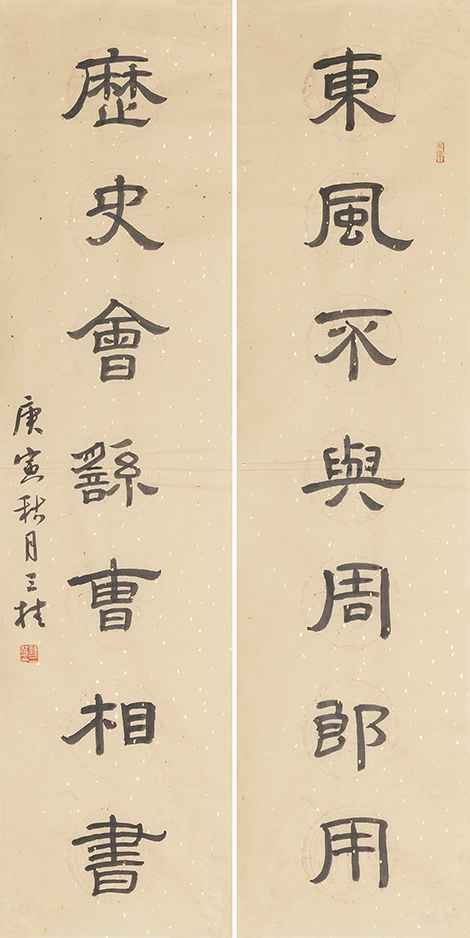 東風不與周郎用
歷史會繇曹相書
庚寅秋月三桂